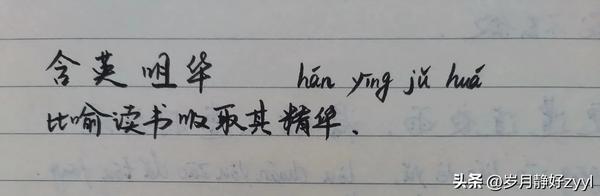 含英咀华 hán yīng jǔ huá
比喻读书吸取其精华、
头条 @岁月静好zyyl